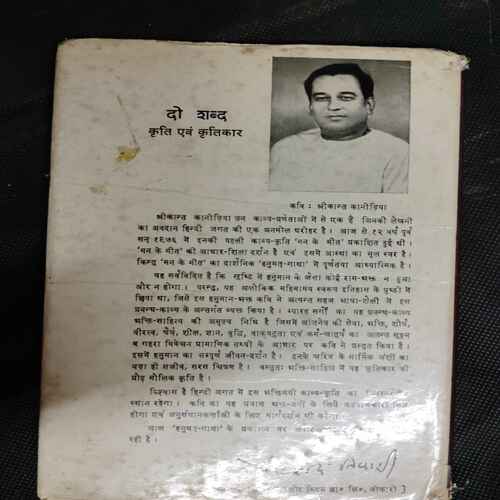 दो शब्द
कृति एवं कृतिकार
कवि : श्रीकान्त कानोड़िया
श्रीकान्त कानोड़िया उन काव्य-प्रणेताओं में से एक हैं जिनकी लेखनी
का अवदान हिन्दी जगत की एक अनमोल धरोहर है। आज से १२ वर्ष पूर्व
सन् १९७६ में इनकी पहली काव्य-कृति 'मन के मीत' प्रकाशित हुई थी।
'मन के मीत' की आधार-शिला दर्शन है एवं उसमें आस्था का मूल स्वर है।
किन्तु 'मन के मीत' का दार्शनिक 'हनुमत्-गाथा' में पूर्णतया आध्यात्मिक है।
यह सर्वविदित है कि सृष्टि में हनुमान के जैसा कोई राम-भक्त न हुआ
और न होगा। परन्तु, यह अलौकिक महिमामय स्वरूप इतिहास के पृष्ठों में
छिपा था, जिसे इस हनुमान-भक्त कवि ने अत्यन्त सहज भाषा-शैली में इस
प्रबन्ध-काव्य के अन्तर्गत व्यक्त किया है। ग्यारह सर्गों का यह प्रबन्ध-काव्य
भक्ति-साहित्य की अमूल्य निधि है जिसमें आंजनेय की सेवा, भक्ति, शौर्य,
वीरत्व, धैर्य, शील, ज्ञान, बुद्धि, वाक्पटुता एवं कर्म-चातुर्य का अत्यन्त सूक्ष्म
व गहरा विवेचन प्रामाणिक तथ्यों के आधार पर कवि ने प्रस्तुत किया है।
इसमें हनुमान का संपूर्ण जीवन-दर्शन है। इनके चरित्र के मार्मिक अंशों का
बड़ा ही सजीव, सरस चित्रण है। वस्तुतः भक्ति-साहित्य में यह कृतिकार की
प्रौढ़ मौलिक कृति है।
विश्वास है हिन्दी जगत में इस भक्तिमयी काव्य-कृति का
स्थान रहेगा। कवि का यह प्रयास भक्त-वर्गों के लिये
होगा एवं अनुसंधानकर्त्ताओं के लिए मार्गदर्शन भी करेगा।
आज 'हनुमत्-गाथा' के प्रकाशन पर
रही है।
तिवारी